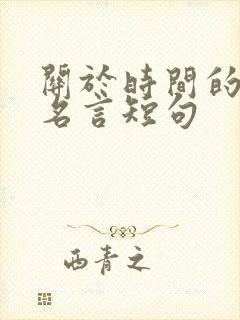 關於時間的
名言短句
西青之